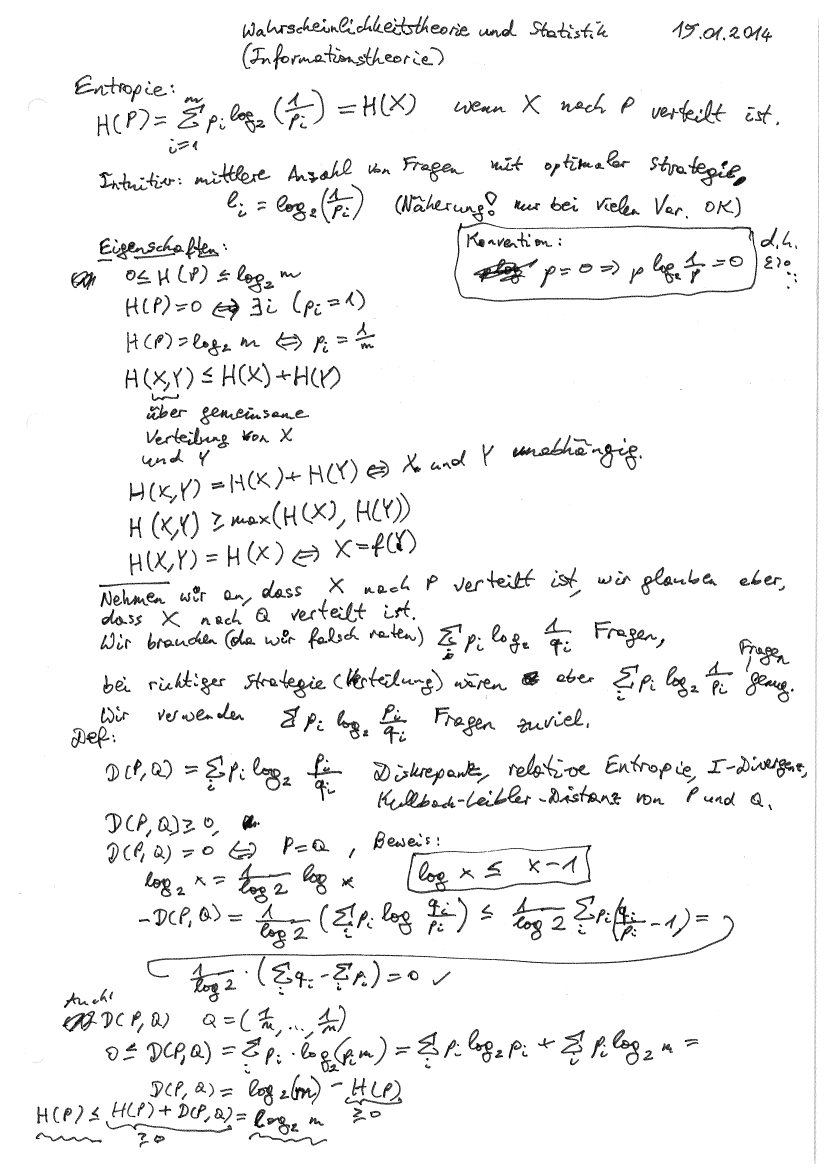 Wahrscheinlichkeitstheorie und Statistik 15.01.2014
(Informationstheorie)
Entropie:
H(P) = ∑_{i=1}^{m} p_i log₂ (1/p_i) = H(X) wenn X nach P verteilt ist.
Intuitiv: mittlere Anzahl von Fragen mit optimaler Strategie,
l_i = log₂(1/p_i) (Näherung! nur bei vielen Var. OK)
Eigenschaften:
Konvention: d.h.
p=0 ⇒ p log₂ 1/p = 0
0 ≤ H(P) ≤ log₂ m
H(P)=0 ⇔ ∃i (p_i=1)
H(P)=log₂ m ⇔ p_i = 1/m
H(X,Y) ≤ H(X)+H(Y)
über gemeinsame
Verteilung von X
und Y
H(X,Y) = H(X)+H(Y) ⇔ X und Y unabhängig.
H(X,Y) ≥ max(H(X), H(Y))
H(X,Y) = H(X) ⇔ X=f(Y)
Nehmen wir an, dass X nach P verteilt ist, wir glauben aber,
dass X nach Q verteilt ist.
Wir brauchen (da wir falsch raten) ∑_i p_i log₂ 1/q_i Fragen,
bei richtiger Strategie (Verteilung) wären aber ∑_i p_i log₂ 1/p_i Fragen genug.
Wir verwenden ∑ p_i log₂ p_i/q_i Fragen zuviel.
Def:
D(P,Q) = ∑_i p_i log₂ p_i/q_i Diskrepanz, relative Entropie, I-Divergenz,
Kullback-Leibler-Distanz von P und Q.
D(P,Q) ≥ 0,
D(P,Q) = 0 ⇔ P=Q, Beweis:
log₂ x = 1/log 2 log x log x ≤ x-1
-D(P,Q) = 1/log 2 (∑_i p_i log q_i/p_i) ≤ 1/log 2 ∑_i p_i(q_i/p_i -1) =
1/log 2 · (∑_i q_i - ∑_i p_i) = 0 ✓
Auch:
D(P,Q) Q = (1/m, ..., 1/m)
0 ≤ D(P,Q) = ∑_i p_i · log₂(p_i m) = ∑_i p_i log₂ p_i + ∑_i p_i log₂ m =
D(P,Q) = log₂(m) - H(P)
≥0
H(P) ≤ H(P) + D(P,Q) = log₂ m
≥0